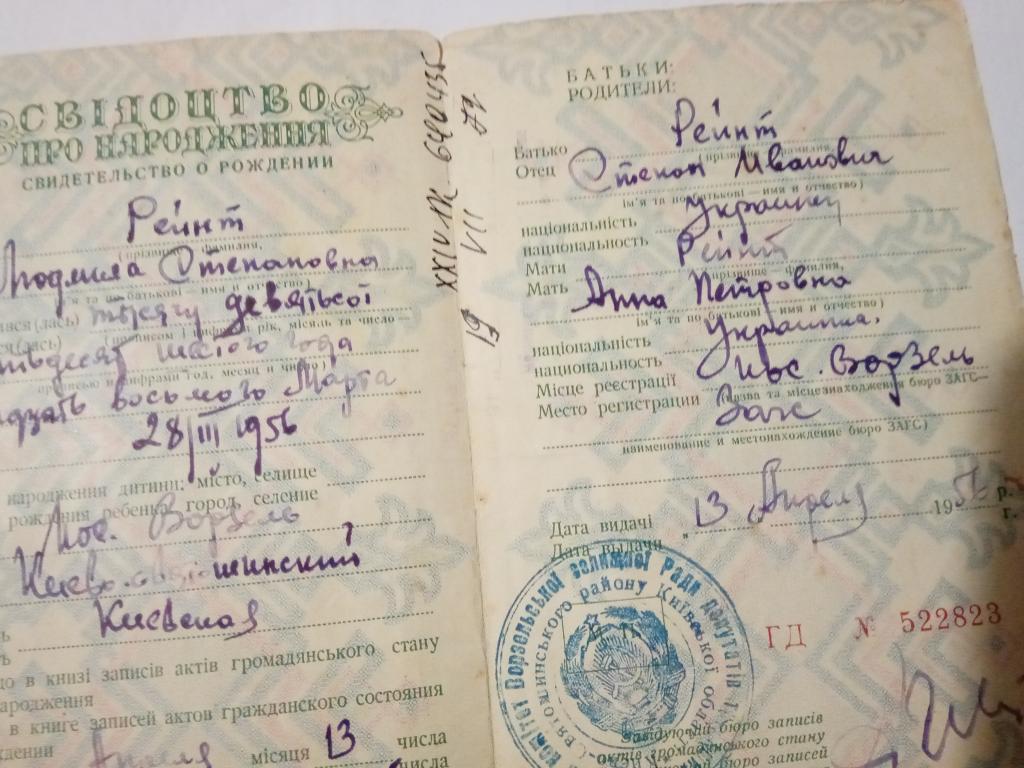 СВІДОЦТВО
ПРО НАРОДЖЕННЯ
СВИДЕТЕЛЬСТВО О РОЖДЕНИИ
Рейнт
(прізвище, фамилия,
Людмила Степановна
я та по батькові – имя и отчество)
ася(лась) тысяча девятьсот
ся(лась) (прописом і цифрами рік, місяць та число –
шестого года
прописью и цифрами год, месяц и число)
восьмого Марта
28/III 1956
народження дитини: місто, селище
рождения ребенка: город, селение
пос. Ворзель
Киево-Святошинский
Киевская
що в книзі записів актів громадянського стану
народження
в книге записей актов гражданского состояния
ждении
Апреля місяця 13 числа
числа
XXIV-ЛК 6404435
19 VII 72
БАТЬКИ:
РОДИТЕЛИ:
Рейнт
Батько
Отец
(прізвище, фамилия,
Степан Иванович
ім'я та по батькові – имя и отчество)
національність украинец
национальность
Мати Рейнт
Мать
(прізвище – фамилия,
Анна Петровна
ім'я та по батькові – имя и отчество)
національність Украинка.
национальность
Місце реєстрації пос. Ворзель
Место регистрации
(назва та місцезнаходження бюро ЗАГС –
Загс
наименование и местонахождение бюро ЗАГС)
Дата видачі
Дата выдачи
„13 Апреля 1956 р.
г.
комітет Ворзельської селищної Ради депутатів
Святошинського району Київської обл
ГД № 522823
Завідуючий бюро записів
актів громадянського стану
бюро записей